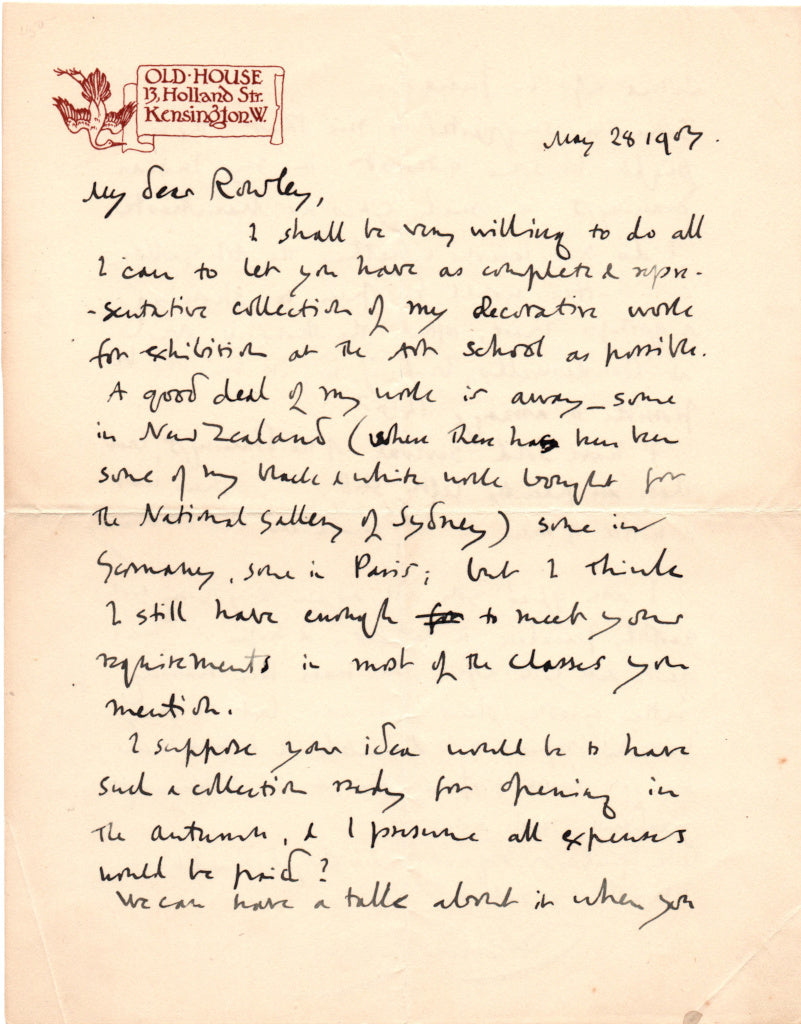 OLD·HOUSE
13, Holland Str.
Kensington.W.
May 28 1907.
My dear Rowley,
I shall be very willing to do all
I can to let you have as complete & repre-
-sentative collection of my decorative work
for exhibition at the Art School as possible.
A good deal of my work is away – some
in New Zealand (where there has been been
some of my black & white work bought for
the National Gallery of Sydney) some in
Germany, some in Paris; but I think
I still have enough for to meet your
requirements in most of the classes you
mention.
I suppose your idea would be to have
such a collection ready for opening in
the autumn, & I presume all expenses
would be paid?
We can have a talk about it when you